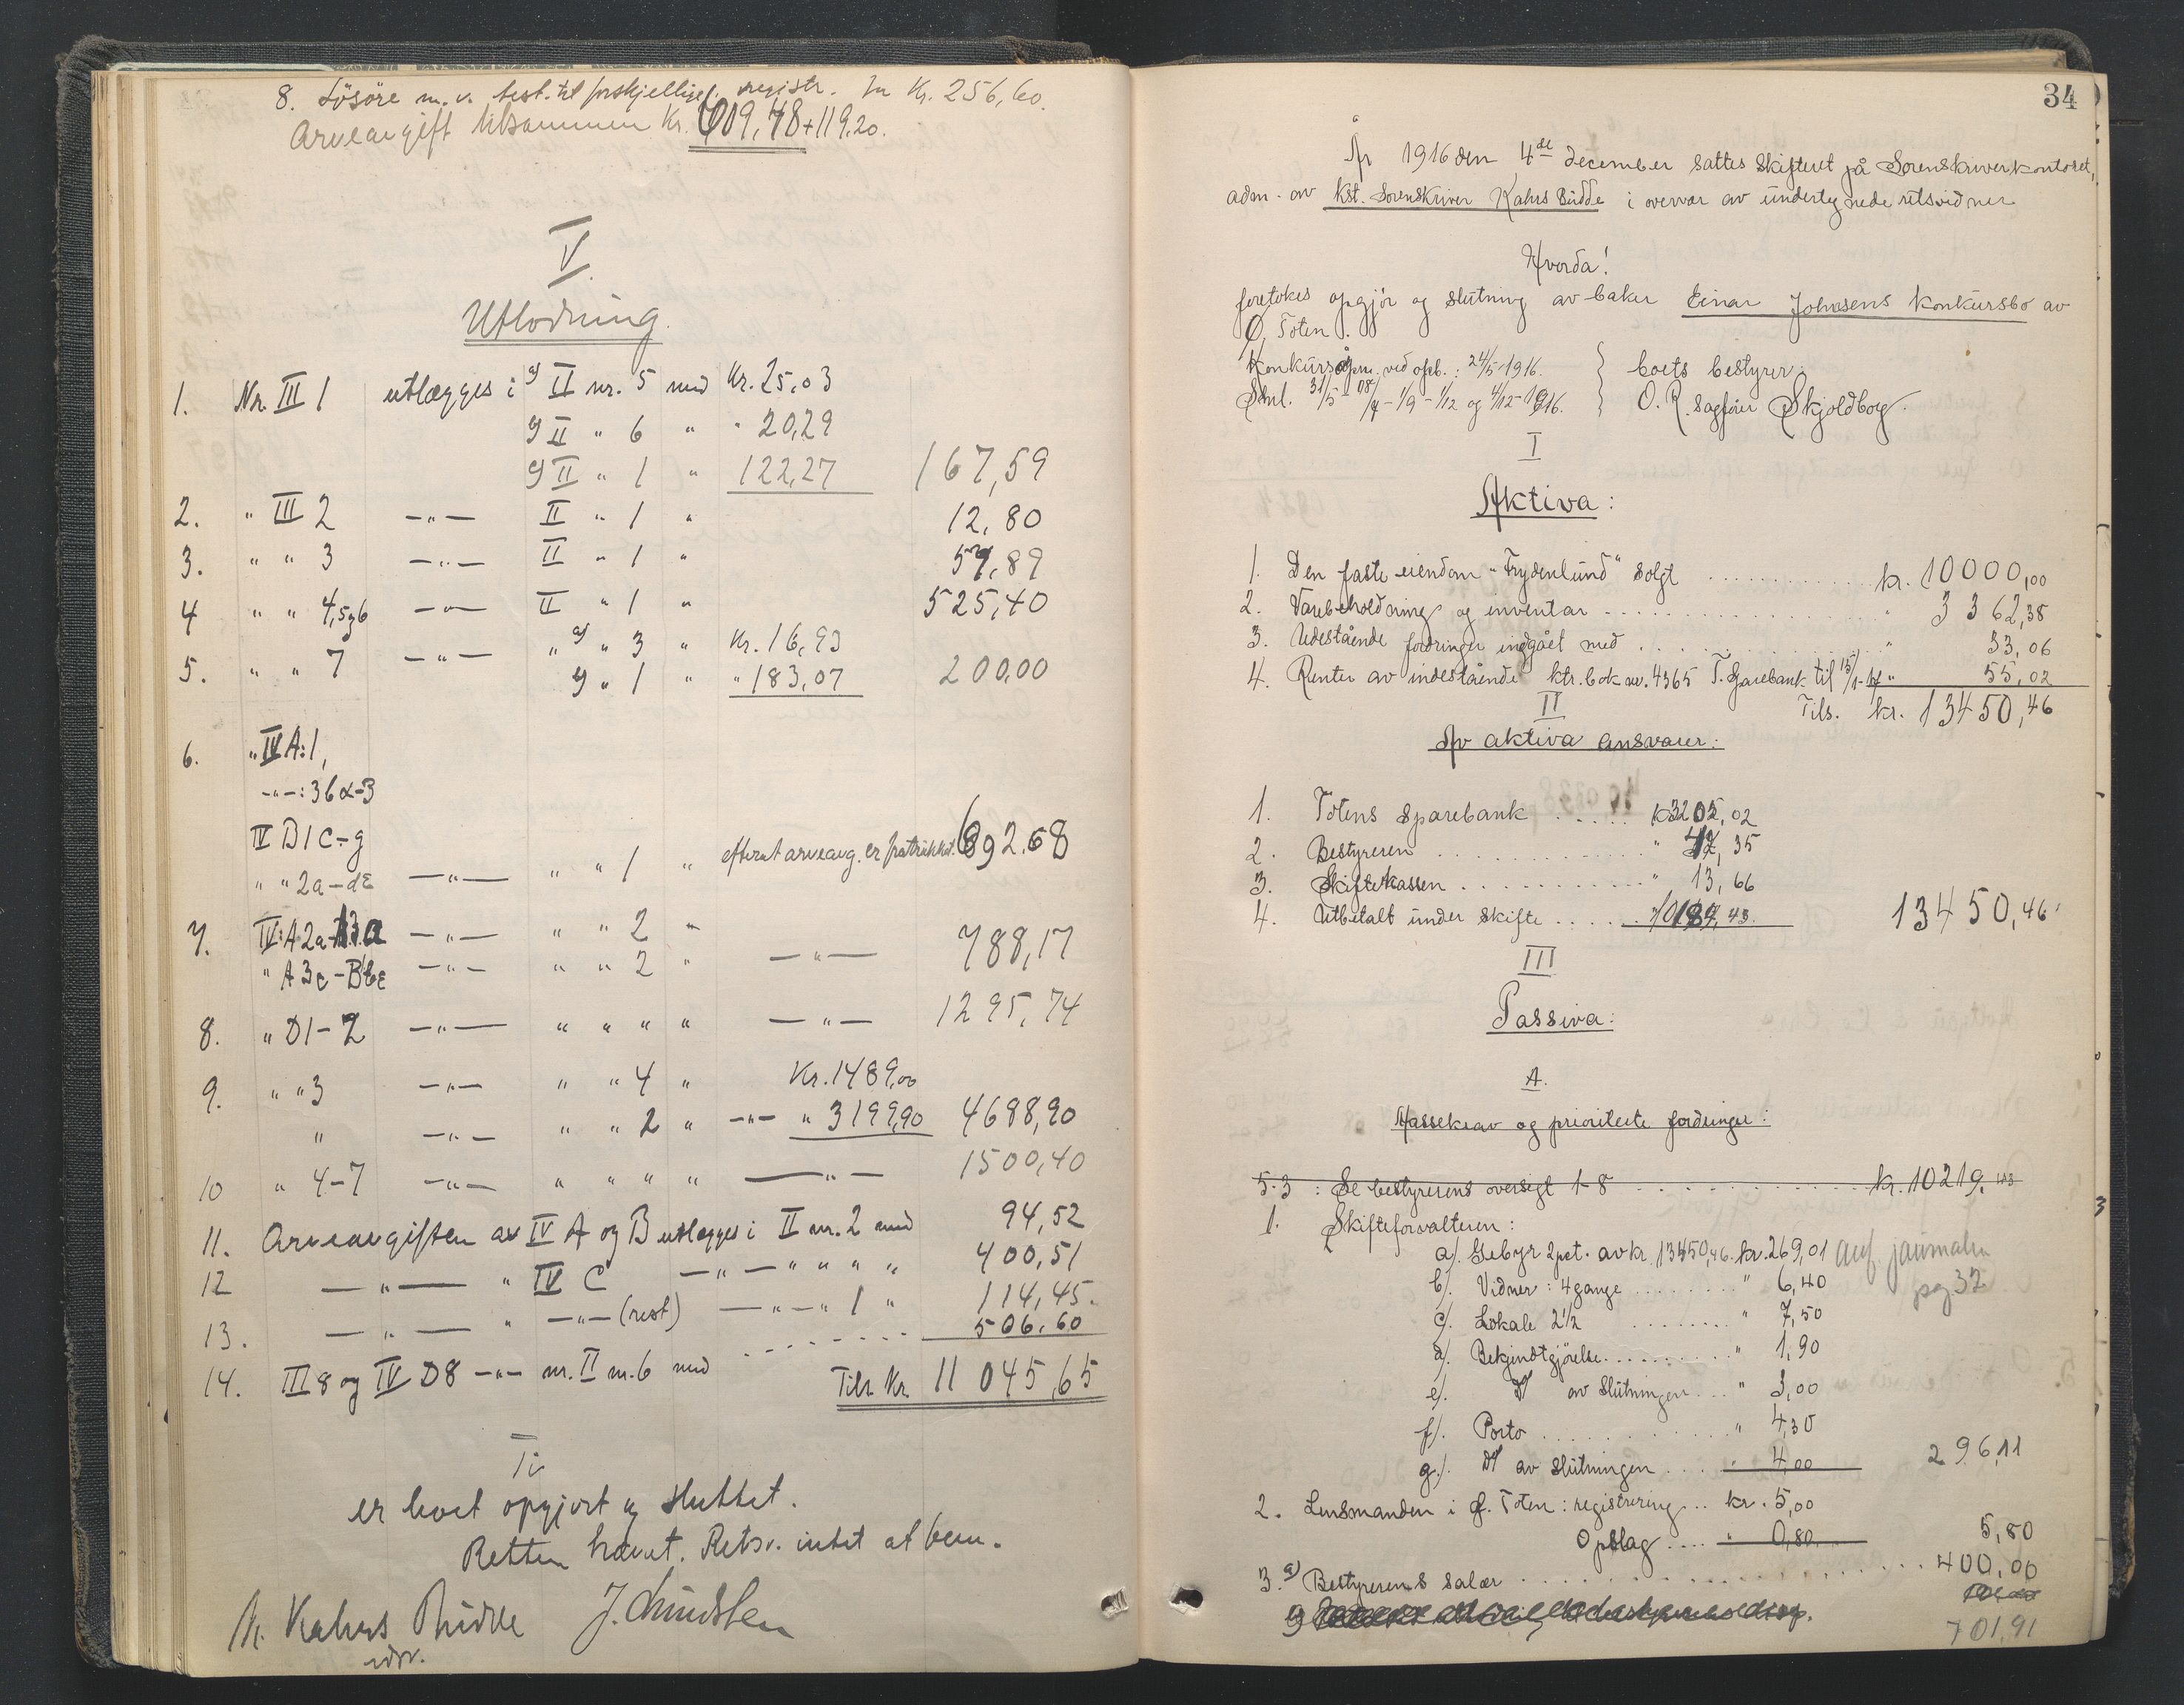 8. Løsøre m.v. test. til forskjellige, registr. for Kr. 256,60.
Arveavgift tilsammen Kr. 609,48+119,20.
V
Utlodning.
1. Nr. III 1 utlægges i a) II nr. 5 med Kr. 25,03
b) II " 6 " " 20,29
c) II " 1 " 122,27 167,59
2. " III 2 —"— II " 1 " 12,80
3. " " 3 —"— II " 1 " 57,89
4 " " 4,5og6 —"— II " 1 " 525,40
5. " " 7 —"— " a) " 3 " Kr. 16,93
b) " 1 " " 183,07 200,00
6. " IV A:1,
—"—: 3bα-3
IV B1c-g
" " 2a-dε —"— " " 1 " efterat arveavg. er fratrukket. 692,68
7. IV: A2a-A3a —"— " " 2 "
" A3c-B1bε —"— " " 2 " —"— 788,17
8. " D1-2 —"— " " " " —"— 1295,74
9. " " 3 —"— " " 4 " Kr. 1489,00
" —"— " " 2 " —"— " 3199,90 4688,90
10 " 4-7 —"— " " " " —"— 1500,40
11. Arveavgiften av IV A og B utlægges i II nr. 2 med 94,52
12 —"— " IV C —"— " " " " 400,51
13. —"— " —"— (rest) —"— " 1 " 114,45.
14. III 8 og IV D8 —"— nr. II nr. 6 med ..... 506,60
Tils. Kr. 11 045,65
Ti
er boet opgjort og sluttet.
Retten hævet. Retsv. intet at bem.
N. Kahrs Budde J. Lundsten
34
År 1916 den 4de december sattes skifteret på Sorenskriverkontoret,
adm. av kst. Sorenskriver Kahrs Budde i overvær av undertegnede retsvidner
Hvorda!
foretokes opgjør og slutning av baker Einar Johnsens konkursbo av
Ø. Toten.
Konkursåpn. ved opb.: 24/5-1916. } boets bestyrer:
Saml. 31/5 - 08/7 - 1/9 - 1/12 og 4/12-1916. } O.R. sagfører Skjoldborg.
I
Aktiva:
1. Den faste eiendom "Frydenlund" solgt .......... kr. 10000,00
2. Varebeholdning og inventar .......... " 3362,38
3. Utestående fordringer indgået med .......... " 33,06
4. Renter av indestående ktr.bok nr. 4365 T. Sparebank til 15/1-17 " 55,02
Tils. kr. 13450,46
II
Av aktiva ansvarer:
1. Totens Sparebank ..... k 3205,02
2. Bestyreren .......... " 42,35
3. Skiftekassen .......... " 13,66
4. Utbetalt under skifte ..... " 10189,43. 13450,46
III
Passiva:
A.
Massekrav og prioriterte fordringer:
5-3: Se bestyrerens oversigt 1-8 .......... kr. 10219,43
1. Skifteforvalteren:
a). Gebyr 2 pct. av kr. 13450,46. kr. 269,01 anf. journalen
b). Vidner: 4 gange ........ " 6,40 pg 32
c). Lokale 2 1/2 ........ " 7,50
d). Bekjendtgjørelse ........ " 1,90
e). Do av slutningen ... " 3,00
f). Porto .......... " 4,30
g.). Do av slutningen .... " 4,00 296,11
2. Lensmanden i Ø. Toten: registrering ... kr. 5,00
Opslag .... " 0,80 5,80
3. a) Bestyrerens salær .......... 400,00
701,91